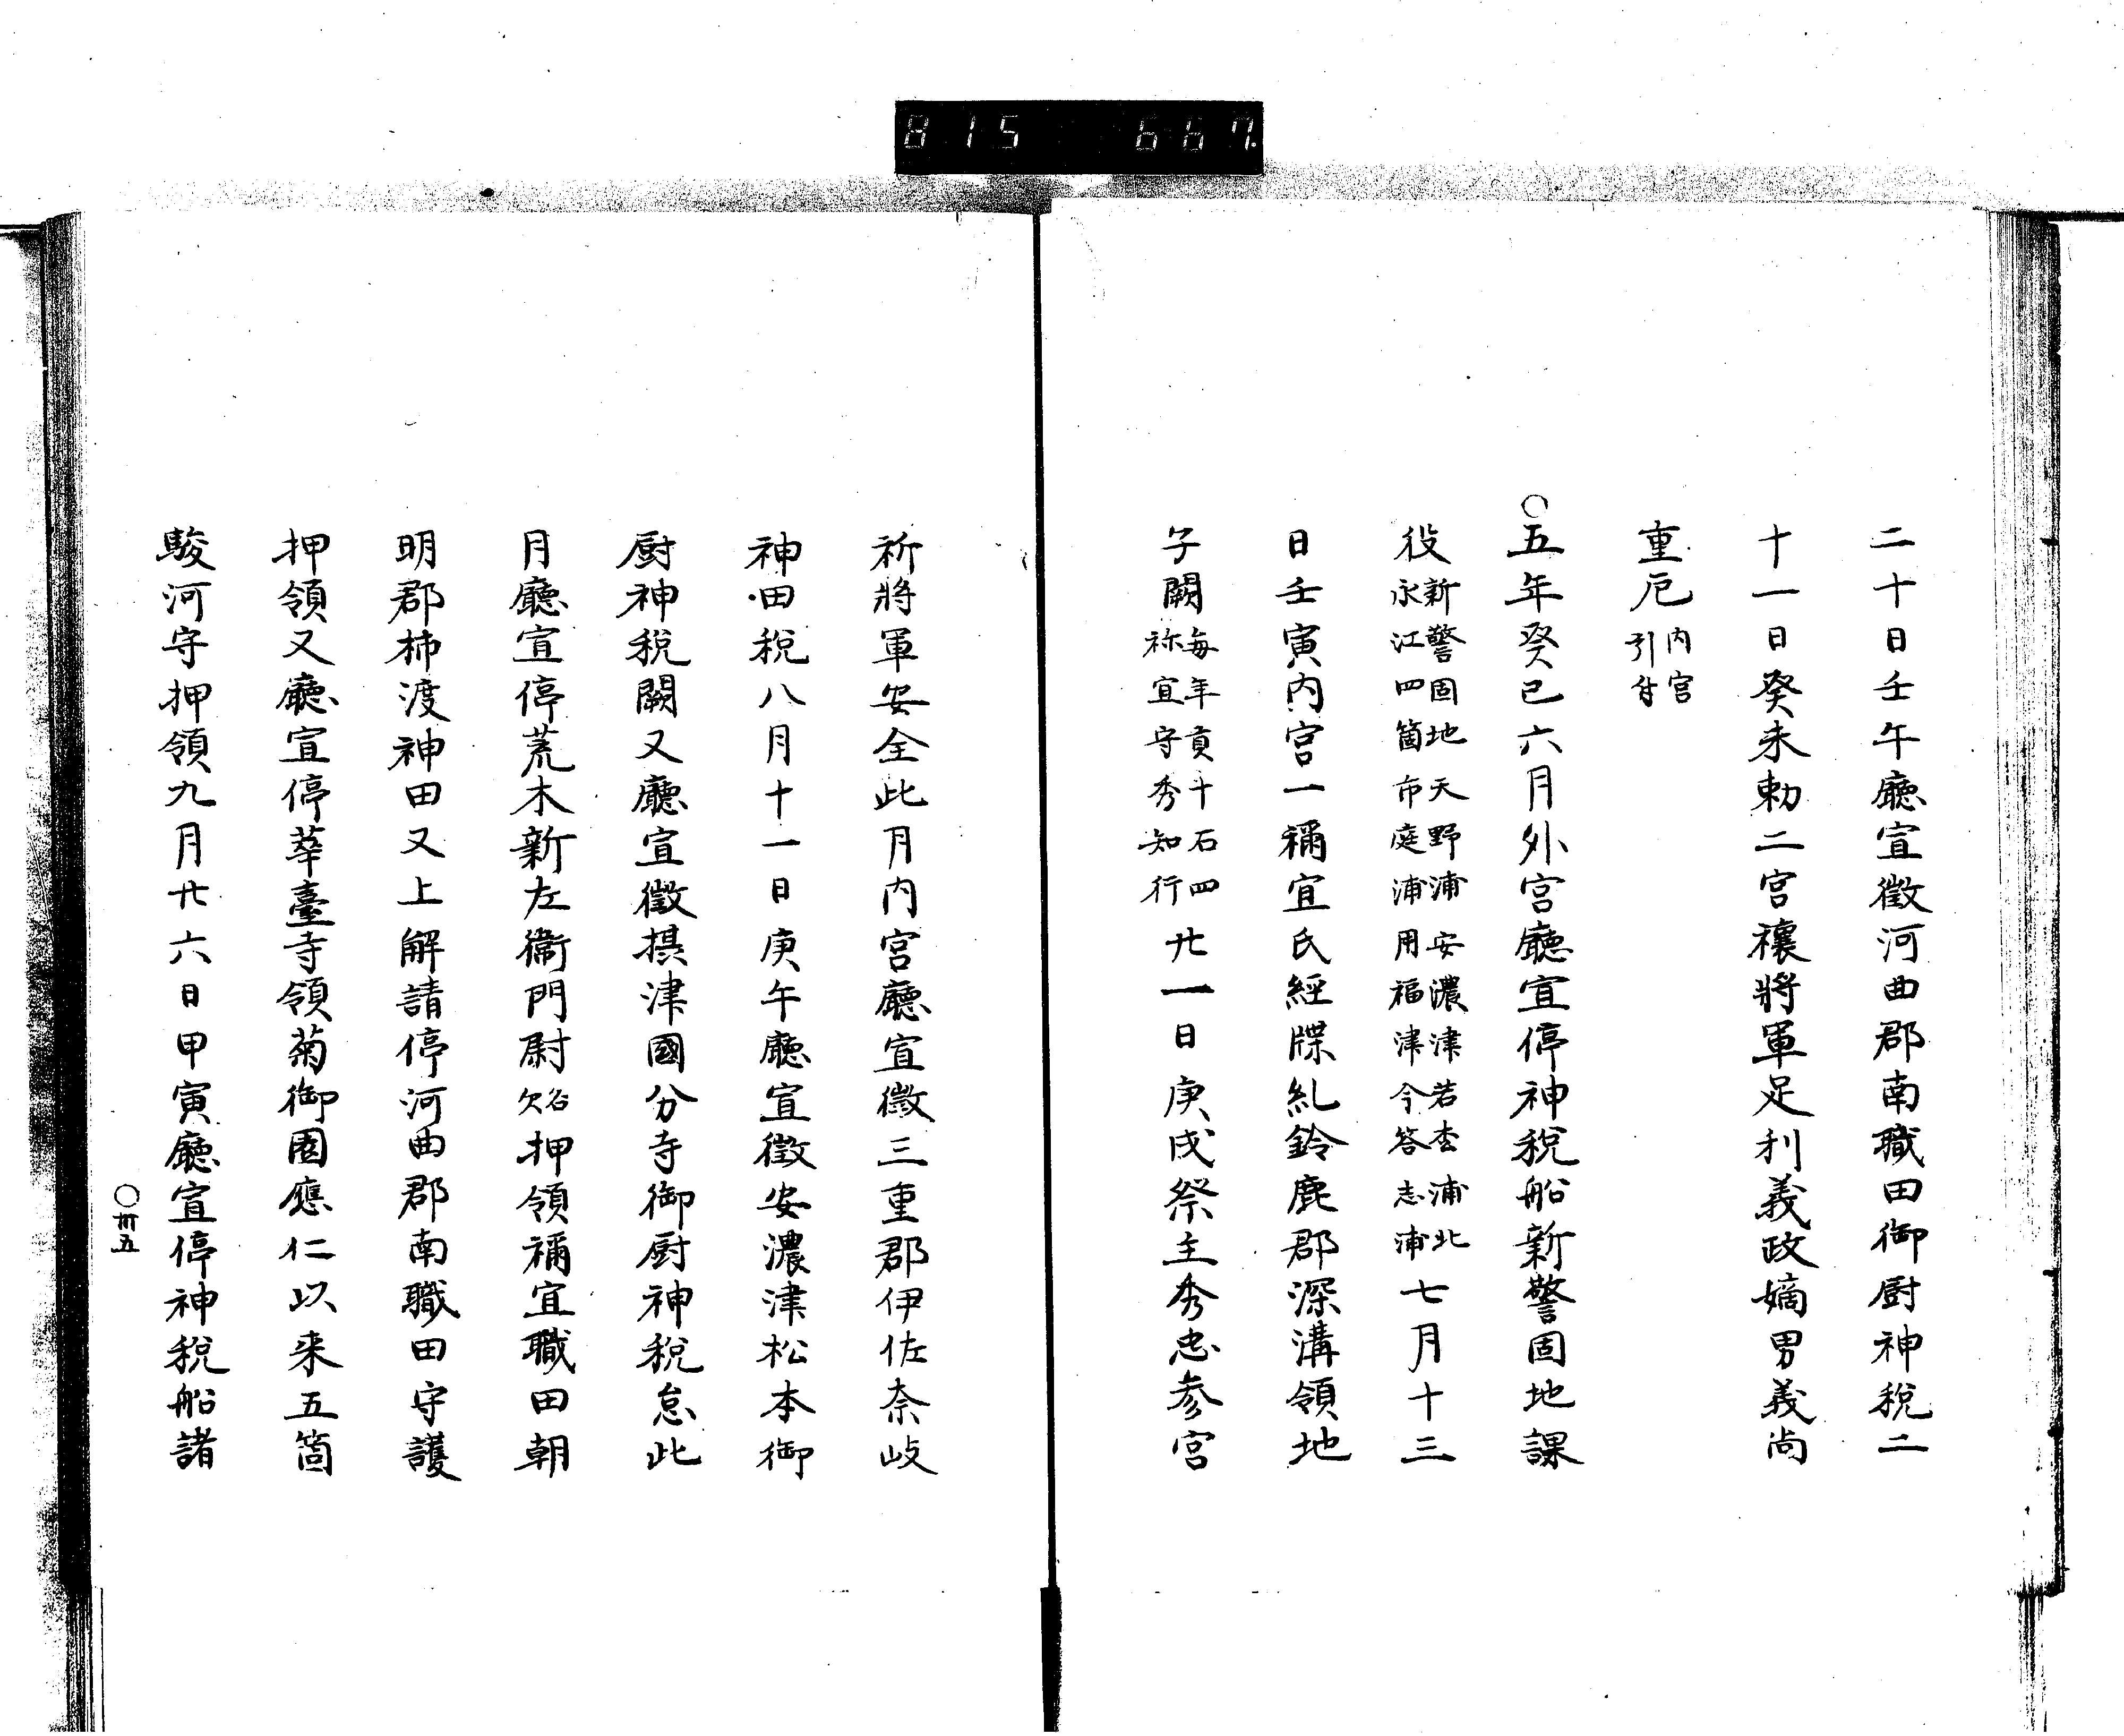 815 667
二十日壬午廳宣徵河曲郡南職田御厨神税二
十一日癸未勅二宮禳將軍足利義政嫡男義尚
重厄 内宮引付
○五年癸巳六月外宮廳宣停神税船新警固地課
役 新警固地天野浦安濃津若枩浦北永江四箇市庭浦用福津今答志浦 七月十三
日壬寅内宮一禰宜氏經牒糺鈴鹿郡深溝領地
子闕 每年貢斗石四祢宜守秀知行 廿一日庚戌祭主秀忠参宮
祈將軍安全此月内宮廳宣徵三重郡伊佐奈岐
神田税八月十一日庚午廳宣徵安濃津松本御
厨神税闕又廳宣徵摂津國分寺御厨神税怠此
月廳宣停荒木新左衞門尉 欠名 押領禰宜職田朝
明郡柿渡神田又上解請停河曲郡南職田守護
押領又廳宣停莘臺寺領菊御園應仁以来五箇
駿河守押領九月廿六日甲寅廳宣停神税船諸
○卅五